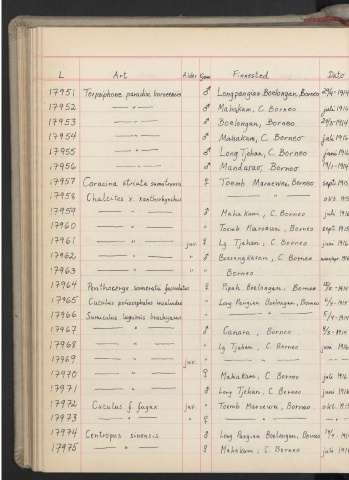 L Art Alder Kjønn Finnested Dato
17951 Terpsiphone paradisi borneensis ♂ Longpangian Boelongan, Borneo 24/4-1914
17952 — " — ♂ Mahakam, C. Borneo juli 1916
17953 — " — ♂ Boelongan, Borneo 1914
17954 — " — ♂ Mahakam, C. Borneo juli 1916
17955 — " — ♂ Long Tjehan, C. Borneo juni 1916
17956 — " — ♂ Borneo 1914
17957 Coracina striata sumatrensis ♀ Toemb Maroewei, Borneo sept. 1915
17958 Chalcites x. xanthorhynchus — " — okt. 1915
17959 — " — ♂ Mahakam, C. Borneo juli 1916
17960 — " — " Toemb Maroewei, Borneo sept. 1915
17961 — " — juv. ♀ Lg Tjehan, C. Borneo juni 1916
17962 — " — " ♂ C. Borneo 1916
17963 — " — " " Borneo
17964 Penthoceryx sonneratii ♀ Pipak Boelongan, Borneo 1914
17965 Cuculus poliocephalus " Long Pangian Boelongan, Borneo 1914
17966 Surniculus lugubris brachyurus — " — 5/4-1914
17967 — " — ♂ Borneo 1914
17968 — " — " Lg Tjehan, C. Borneo juni 1916
17969 — " — juv. — " — — " —
17970 — " — ♀ Mahakam, C. Borneo juli 1916
17971 — " — ♂ Long Tjehan, C. Borneo juni 1916
17972 Cuculus f. fugax juv. " Toemb Maroewei, Borneo okt. 1915
17973 — " — " ♀ — " — — " —
17974 Centropus sinensis ♂ Long Pangian Boelongan, Borneo 1914
17975 — " — ♂ Mahakam, C. Borneo juli 1916